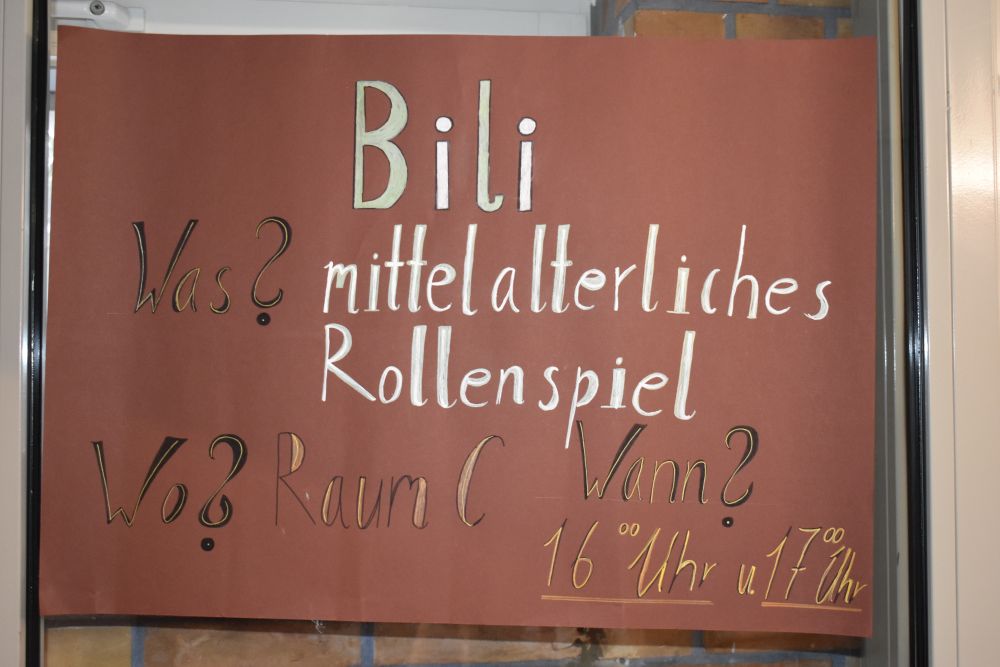 Bili
Was? mittelalterliches
Rollenspiel
Wo? Raum C Wann?
16⁰⁰ Uhr u. 17⁰⁰ Uhr